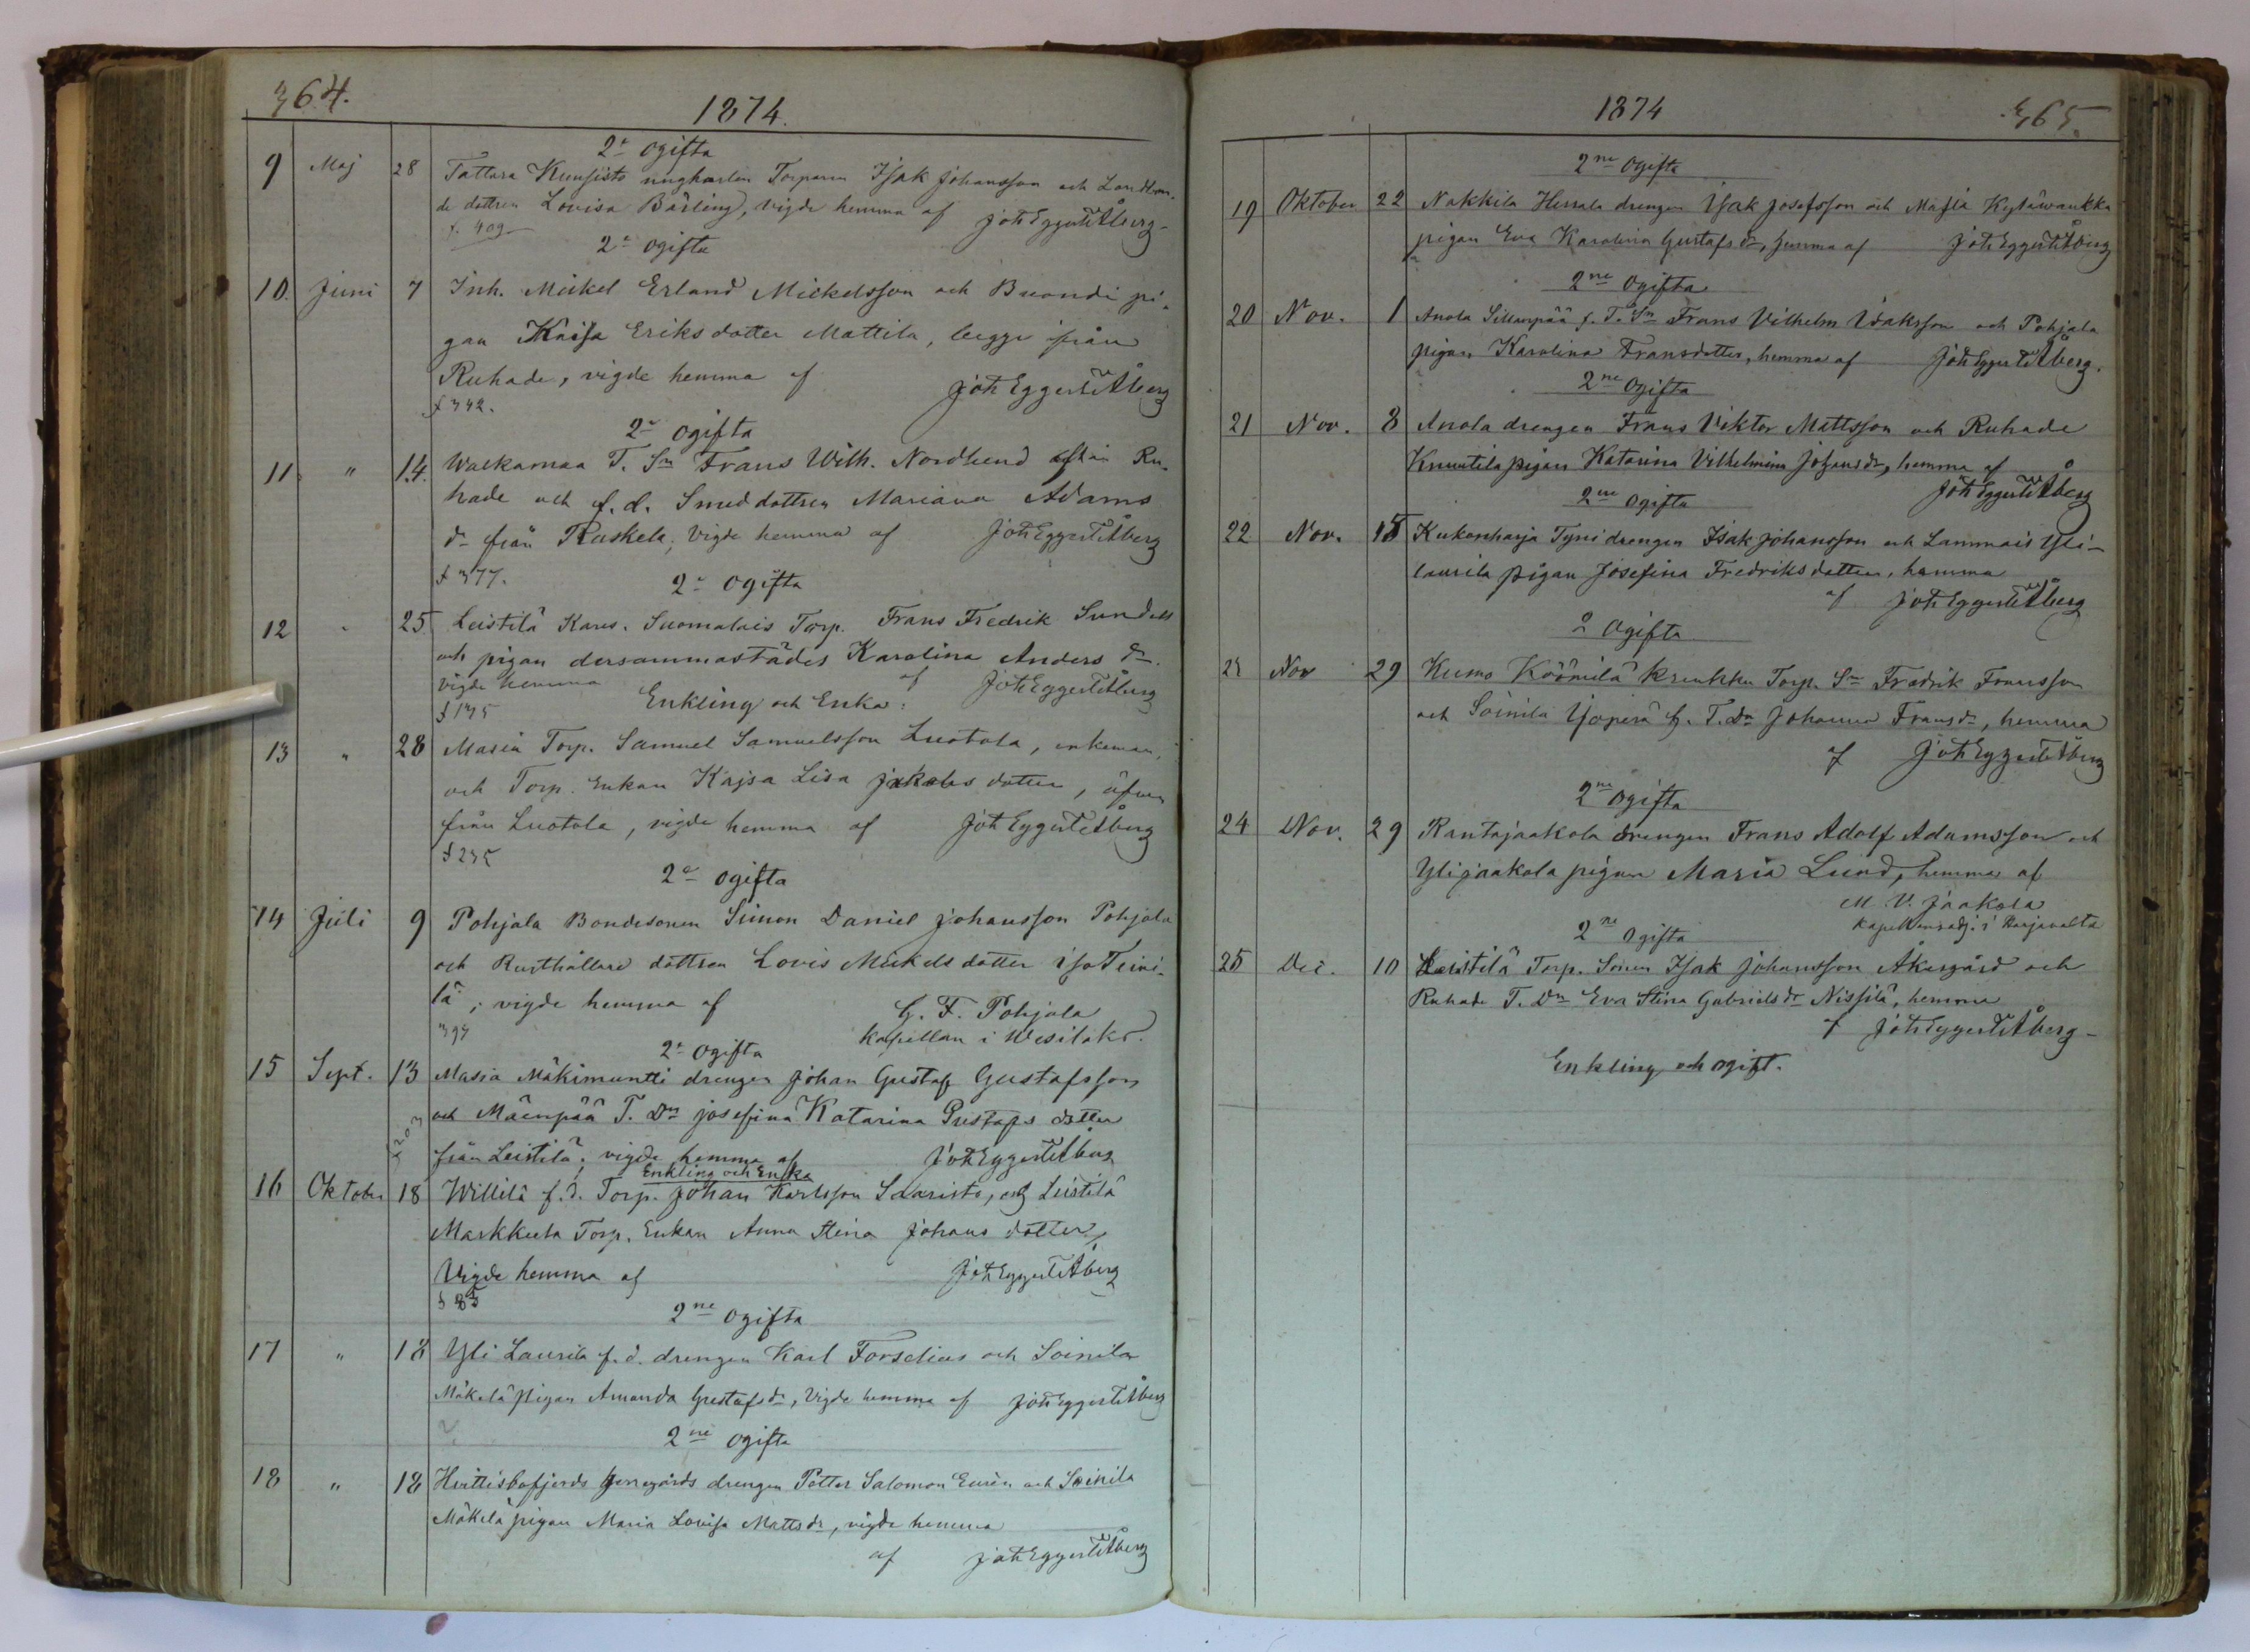 364.
1874.
2ne ogifta
9 Maj 28 Tattara Kuusisto ungkarlen Torparen Isak Johansson och Landbon-
de dottren Lovisa Bärling, vigde hemma af Joh Eggert Åberg
f. 409
2ne ogifta
10. Juni 7 Inh. Mickel Erland Mickelsson och Buondi pi-
gan Kaisa Eriksdotter Mattila, begge från
Ruhade, vigde hemma af Joh Eggert Åberg
f 342.
2ne ogifta
11 " 14. Walkamaa T. Sn Frans Wilh. Nordlund från Ru-
hade och f. d. Smeddottren Mariana Adams
dr från Ruskela, vigde hemma af Joh Eggert Åberg
f 377.
2ne ogifta
12 " 25 Leistilä Kares. Suomalais Torp. Frans Fredrik Sundell
och pigan dersammastädes Karolina Anders dr
vigde hemma af Joh Eggert Åberg
f 135
Enkling och Enka.
13 " 28 Masia Torp. Samuel Samuelsson Luotola, enkeman,
och Torp. Enkan Kajsa Lisa Jakobs dotter, äfven
från Luotola, vigde hemma af Joh Eggert Åberg
f 235
2ne ogifta
14 Juli 9 Pohjala Bondesonen Simon Daniel Johansson Pohjala
och Rusthållare dottren Lovis Mickels dotter iso Teini-
lä; vigde hemma af G. F. Pohjala
394 Kapellan i Wesilaks.
2ne ogifta
15 Sept. 13 Masia Mäkimuntti drengen Johan Gustaf Gustafsson
och Mäenpää T. Dn Josefina Katarina Gustafs dotter
f 203 från Leistilä; vigde hemma af Joh Eggert Åberg
Enkling och Enka
16 Oktober 18 Willilä f.d. Torp. Johan Karlsson Saaristo, och Leistilä
Markkula Torp. Enkan Anna Stina Johans dotter,
Vigde hemma af Joh Eggert Åberg
2ne ogifta
17 " 18 Yli Laurila f.d. drengen Karl Forselius och Soinila
Mäkelä pigan Amanda Gustafs dr, Vigde hemma af Joh Eggert Åberg
2ne ogifta
18 " 18 Hvittisbofjerds herregårds drengen Petter Salomon Eurèn och Soinila
Mäkelä pigan Maria Lovisa Matts dr, vigde hemma
af Joh Eggert Åberg
1874
365.
2ne ogifta
19 Oktober 22 Nakkila Herrala drengen Isak Josefsson och Masia Kyläwaukka
pigan Eva Karolina Gustafs dr, hemma af Joh Eggert Åberg
2ne ogifta
20 Nov. 1 Anola Sillanpää f. T. Sn Frans Vilhelm Isaksson och Pohjala
pigan Karolina Fransdotter, hemma af Joh Eggert Åberg.
2ne ogifta
21 Nov. 8 Anola drengen Frans Viktor Mattsson och Ruhade
Knuutila pigan Katarina Vilhelmina Johans dr, hemma af
Joh Eggert Åberg
2ne ogifta
22 Nov. 15 Kukonharja Tyni drengen Isak Johansson och Lammais Yli-
laurila pigan Josefina Fredriksdotter, hemma
af Joh Eggert Åberg
2 ogifta
23 Nov 29 Kumo Köömilä Krenkku Torp. Sn Fredrik Fransson
och Soinila Yoperä f. T. Dn Johanna Frans dr, hemma
af Joh Eggert Åberg
2ne ogifta
24 Nov. 29 Rantajaakola drengen Frans Adolf Adamsson och
Ylijaakola pigan Maria Lund, hemma af
M. V. Jaakola
Kapellansadj. i Harjavalta
2ne ogifta
25 Dec. 10 Leistilä Torp. Sonen Isak Johansson Åkergård och
Ruhade T. Dn Eva Stina Gabriels dr Nissilä, hemma
af Joh Eggert Åberg
Enkling och ogift.